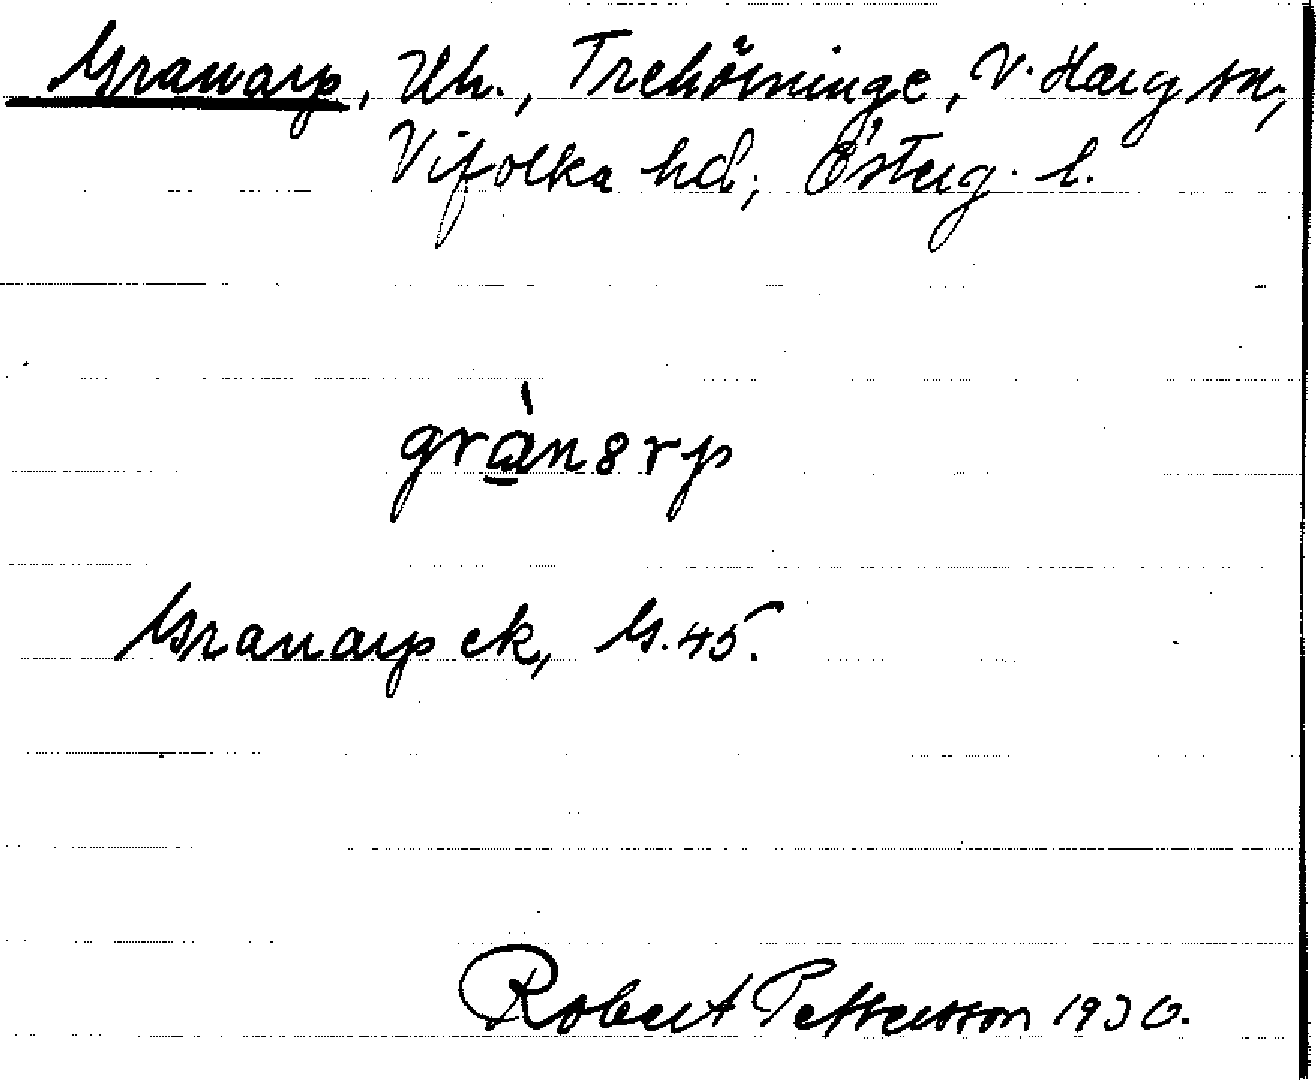 Granarp, Uh., Trehörninge, V. Harg sn,
Vifolka hd, Österg. l.
grànərp
Granarp ek, G. 45.
Robert Pettersson 1930.